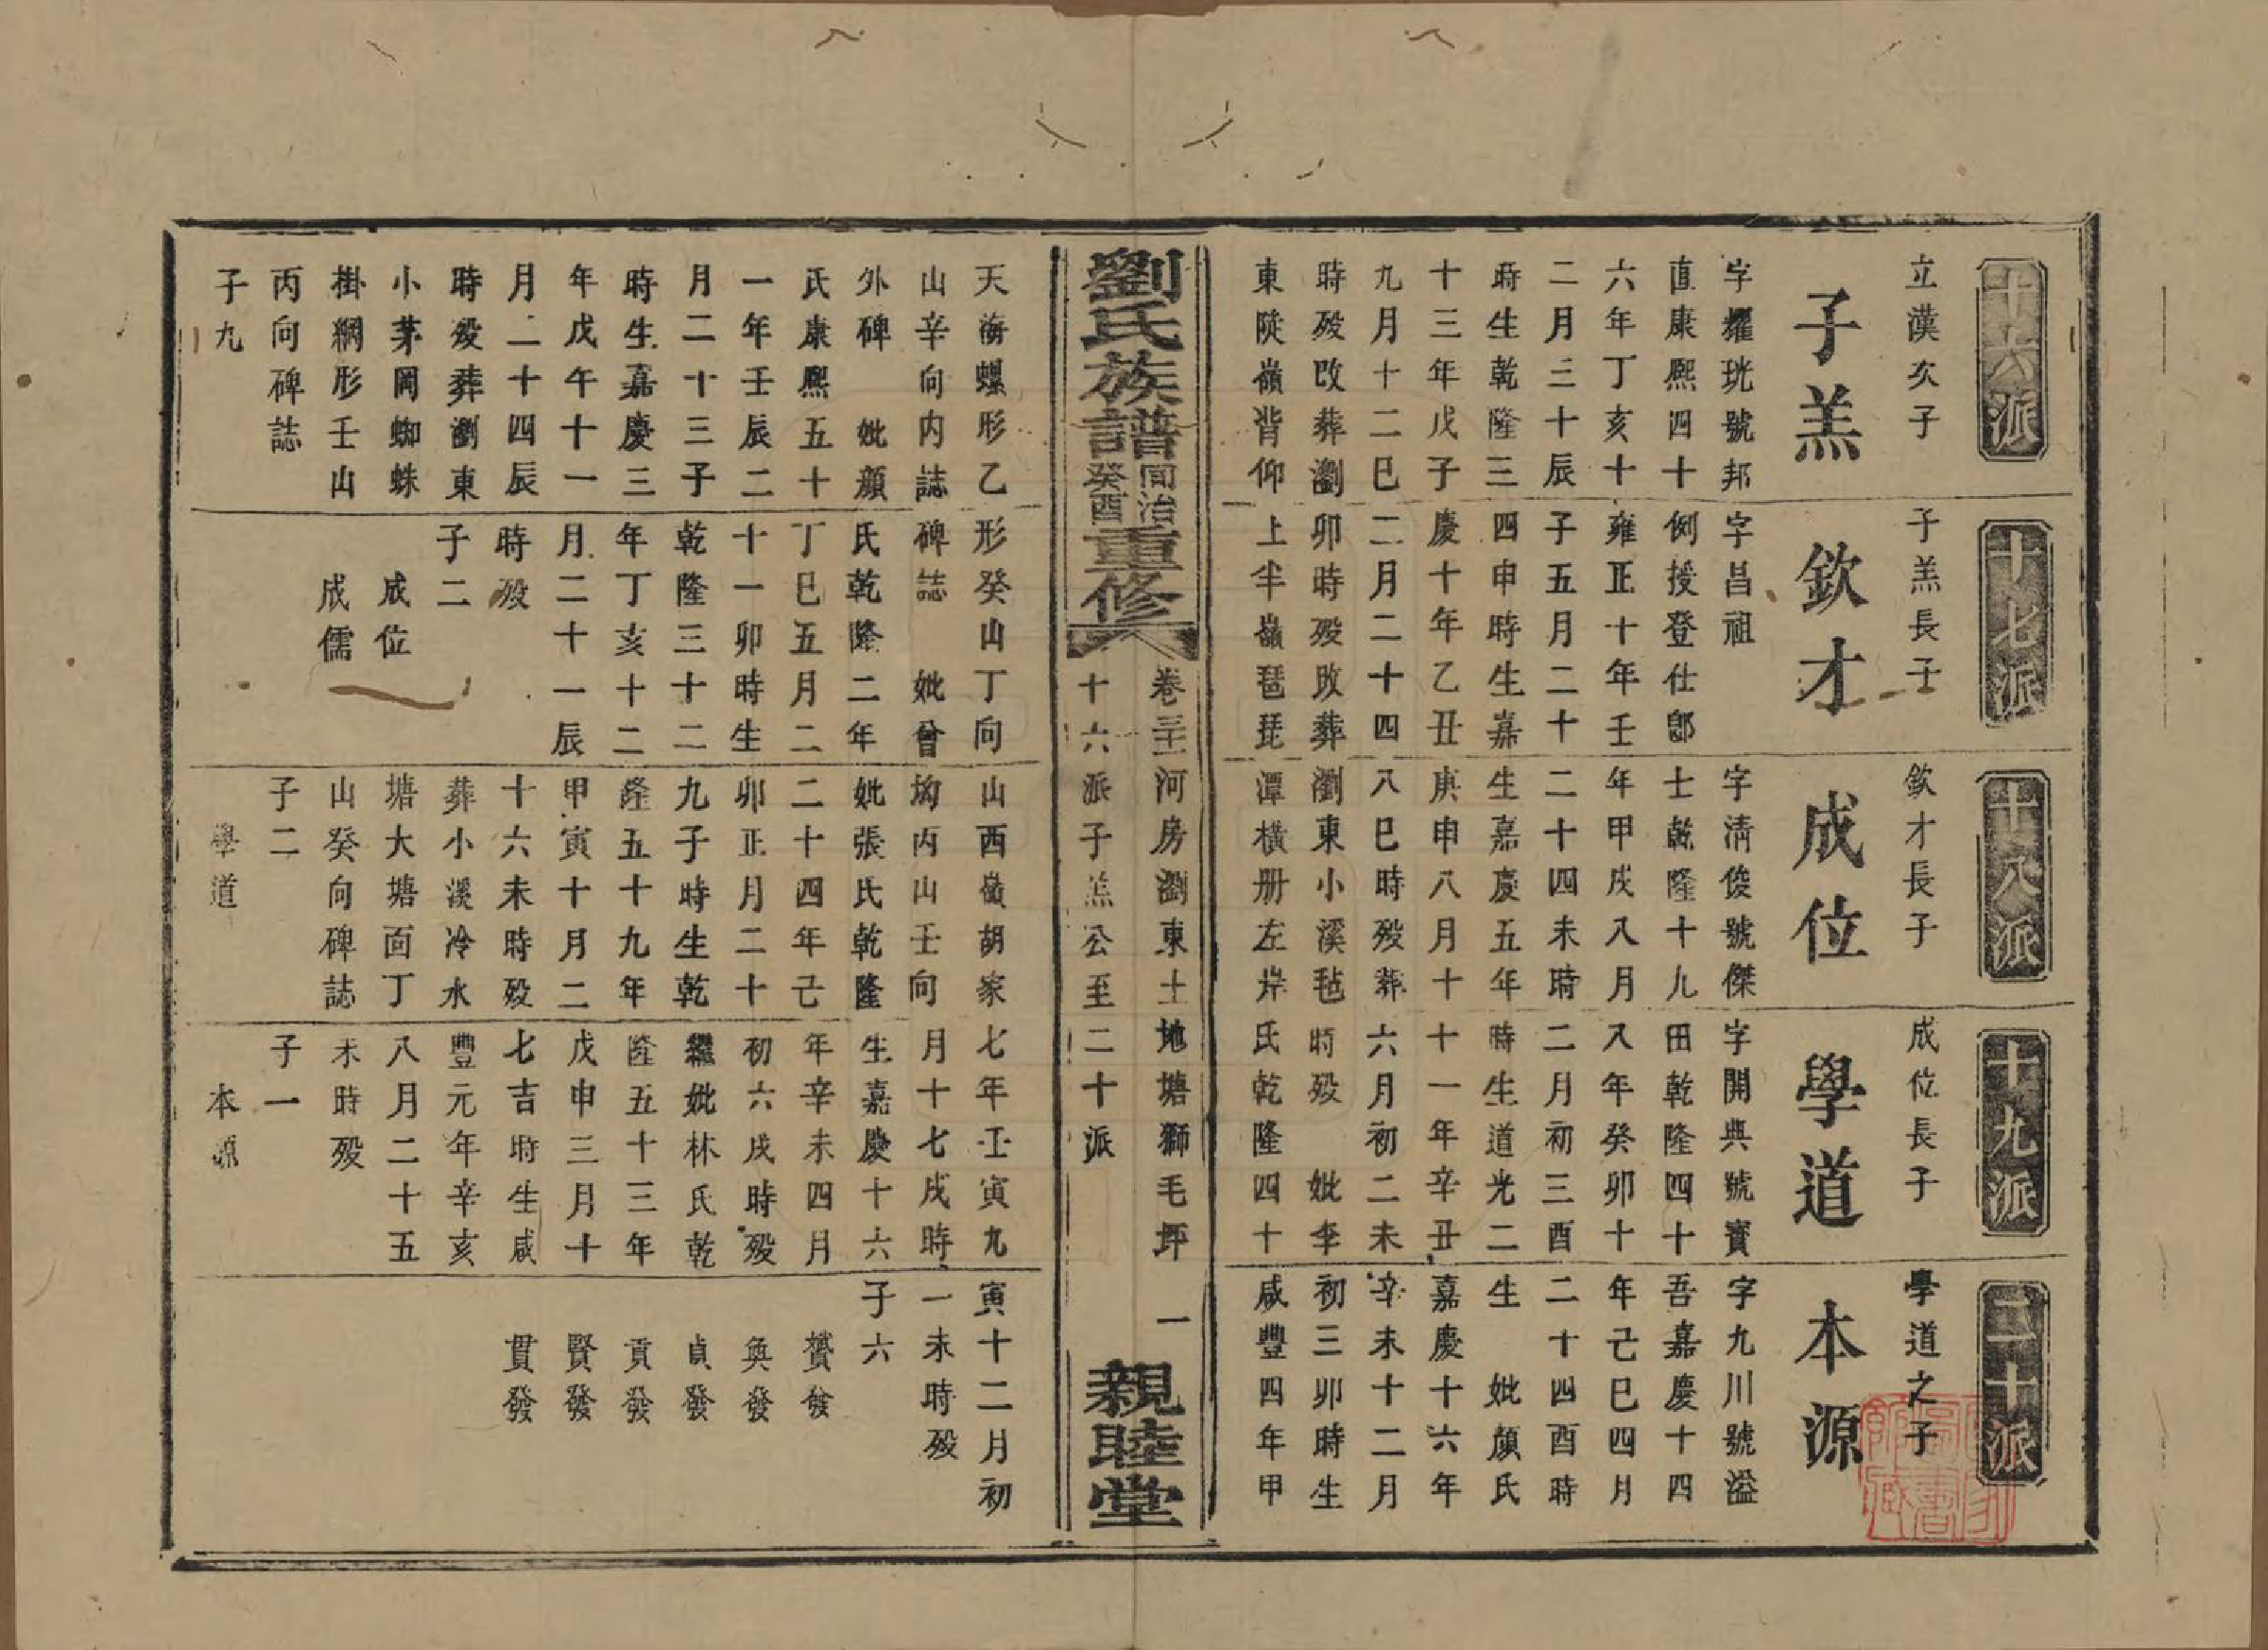 十六派
立漢次子
子羔
字耀珖號邦
直康熙四十
六年丁亥十
二月三十辰
時生乾隆三
十三年戊子
九月十二巳
時殁改葬瀏
東陕嶺背仰
天海螺形乙
山辛向内誌
外碑　妣顔
氏康熙五十
一年壬辰二
月二十三子
時生嘉慶三
年戊午十一
月二十四辰
時殁葬瀏東
小茅岡蜘蛛
掛網形壬山
丙向碑誌
子九
十七派
子羔長子
欽才
字昌祖
例授登仕郎
雍正十年壬
子五月二十
四申時生嘉
慶十年乙丑
二月二十四
卯時殁改葬
上半嶺琶琵
形癸山丁向
碑誌　妣曾
氏乾隆二年
丁巳五月二
十一卯時生
乾隆三十二
年丁亥十二
月二十一辰
時殁
子二
成位
成儒
十八派
欽才長子
成位
字清俊號傑
士乾隆十九
年甲戌八月
二十四未時
生嘉慶五年
庚申八月十
八巳時殁葬
瀏東小溪毡
潭橫册左岸
山西嶺胡家
坳丙山壬向
妣張氏乾隆
二十四年己
卯正月二十
九子時生乾
隆五十九年
甲寅十月二
十六未時殁
葬小溪冷水
塘大塘面丁
山癸向碑誌
子二
學道
十九派
成位長子
學道
字開典號寶
田乾隆四十
八年癸卯十
二月初三酉
時生道光二
十一年辛丑
六月初二未
時殁　妣李
氏乾隆四十
七年壬寅九
月十七戌時
生嘉慶十六
年辛未四月
初六戌時殁
繼妣林氏乾
隆五十三年
戊申三月十
七吉時生咸
豐元年辛亥
八月二十五
未時殁
子一
本源
二十派
學道之子
本源
字九川號溢
吾嘉慶十四
年己巳四月
二十四酉時
生　妣顔氏
嘉慶十六年
辛未十二月
初三卯時生
咸豐四年甲
寅十二月初
一未時殁
子六
贊發
奐發
貞發
貢發
賢發
貫發
劉氏族譜
同治癸酉
重修
卷三十一河房瀏東土地塘獅毛坪　一
十六派子羔公至二十派
親睦堂